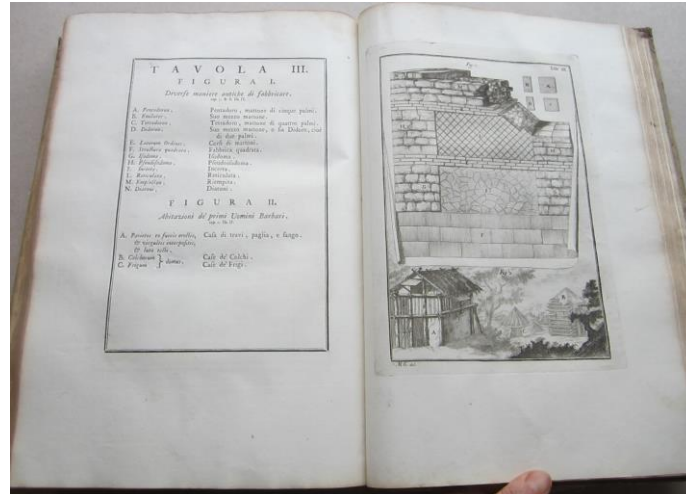 TAVOLA III.
FIGURA I.
Diverse maniere antiche di fabbricare.
A. Pentadoron. Pentadoro, mattone di cinque palmi.
B. Emilater. Suo mezzo mattone.
C. Tetradoron. Tetradoro, mattone di quattro palmi.
D. Didoron. Suo mezzo mattone, o sia Didoro, cioè
di due palmi.
E. Ordines. Corsi di mattoni.
F. Structura quadrata. Fabbrica quadrata.
G. Isodoma. Isodoma.
H. Pseudisodoma. Pseudisodoma.
I. Incerta. Incerta.
L. Reticulata. Reticulata.
M. Emplecton. Riempita.
N. Diatoni. Diatoni.
FIGURA II.
Abitazioni de' primi Uomini Barbari.
A. Parietes ex furcis erectis, Case di travi, paglia, e fango.
& virgultis interpositis,
& luto tectis.
B. Colchorum } domus. Case de' Colchi.
C. Frigum Case de' Frigi.
Fig. I.